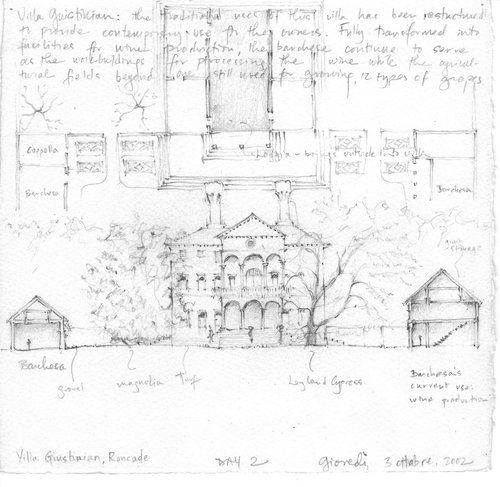 Villa Guistinian: the traditional uses of this villa has been restructured
to provide contemporary use for the owners. Fully transformed into
facilities for wine production, the barchese continue to serve
as the workbuildings for processing the wine while the agricul-
tural fields beyond are still used for growing 12 types of grapes
Cappella
Loggia - brings outside into villa
Barchesa
Barchesa
grain storage
Barchesa
gravel
magnolia
Turf
Leyland Cypress
Barchesa's
current use:
wine production
Villa Giustinian, Roncade
DAY 2
giovedi, 3 ottobre, 2002